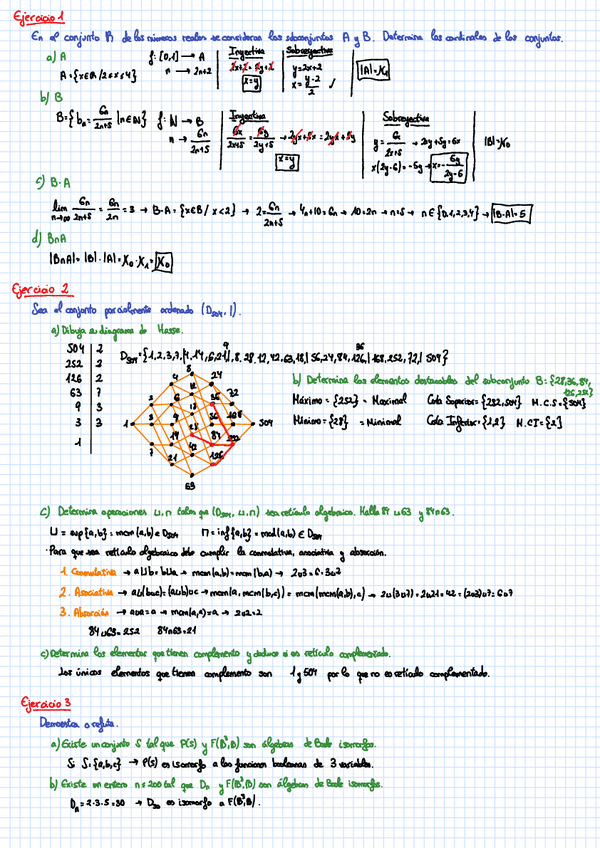 Ejercicio 1
En el conjunto ℝ de los números reales se consideran los subconjuntos A y B. Determina los cardinales de los conjuntos.
a) A
f: [0,1] → A
Inyectiva
Sobreyectiva
A = {x∈ℝ / 2≤x≤4}
n → 2n+2
2x+2 = 2y+2
x = y
y = 2x+2
x = y-2/2 ✓
|A| = ℵ₁
b) B
B = { bₙ = 6n/2n+5 | n∈ℕ }
f: ℕ → B
n → 6n/2n+5
Inyectiva
6x/2x+5 = 6y/2y+5 → 2yx+5x = 2yx+5y
x = y
Sobreyectiva
y = 6x/2x+5 → 2xy+5y = 6x
x(2y-6) = -5y → x = -5y/2y-6
|B| = ℵ₀
c) B-A
lim n→∞ 6n/2n+5 = 6n/2n = 3 → B-A = {x∈B / x<2} → 2 = 6n/2n+5 → 4n+10 = 6n → 10 = 2n → n = 5 → n∈{0,1,2,3,4} → |B-A| = 5
d) B∩A
|B∩A| = |B|·|A| = ℵ₀·ℵ₁ = ℵ₀
Ejercicio 2
Sea el conjunto parcialmente ordenado (D₅₀₄, |).
a) Dibuja el diagrama de Hasse.
504 | 2
252 | 2
126 | 2
63 | 7
9 | 3
3 | 3
1
b) Determina los elementos destacables del subconjunto B = {28,36,84,
126,252}
Máximo = {252} = Maximal Cota Superior = {252,504} M.C.S = {504}
Mínimo = {28} = Minimal Cota Inferior = {1,2} M.CI = {2}
c) Determina operaciones ⊔,⊓ tales que (D₅₀₄, ⊔,⊓) sea retículo algebraico. Halla 84 ⊔ 63 y 84⊓63.
⊔ = sup{a,b} = mcm(a,b) ∈ D₅₀₄ ⊓ = inf{a,b} = mcd(a,b) ∈ D₅₀₄
· Para que sea retículo algebraico debe cumplir la conmutativa, asociativa y absorción.
1. Conmutativa → a⊔b = b⊔a → mcm(a,b) = mcm(b,a) → 2⊔3 = 6 = 3⊔2
2. Asociativa → a⊔(b⊔c) = (a⊔b)⊔c → mcm(a, mcm(b,c)) = mcm(mcm(a,b),c) → 2⊔(3⊔7) = 2⊔21 = 42 = (2⊔3)⊔7 = 6⊔7
3. Absorción → a⊔a = a → mcm(a,a) = a → 2⊔2 = 2
84⊔63 = 252 84⊓63 = 21
c) Determina los elementos que tienen complemento y deduce si es retículo complementado.
Los únicos elementos que tienen complemento son 1 y 504 por lo que no es retículo complementado.
Ejercicio 3
Demuestra o refuta.
a) Existe un conjunto S tal que P(S) y F(B³,B) son álgebras de Boole isomorfos.
Si S = {a,b,c} → P(S) es isomorfo a las funciones booleanas de 3 variables.
b) Existe un entero n≤200 tal que Dₙ y F(B³,B) son álgebras de Boole isomorfos.
Dₙ = 2·3·5 = 30 → D₃₀ es isomorfo a F(B³,B).